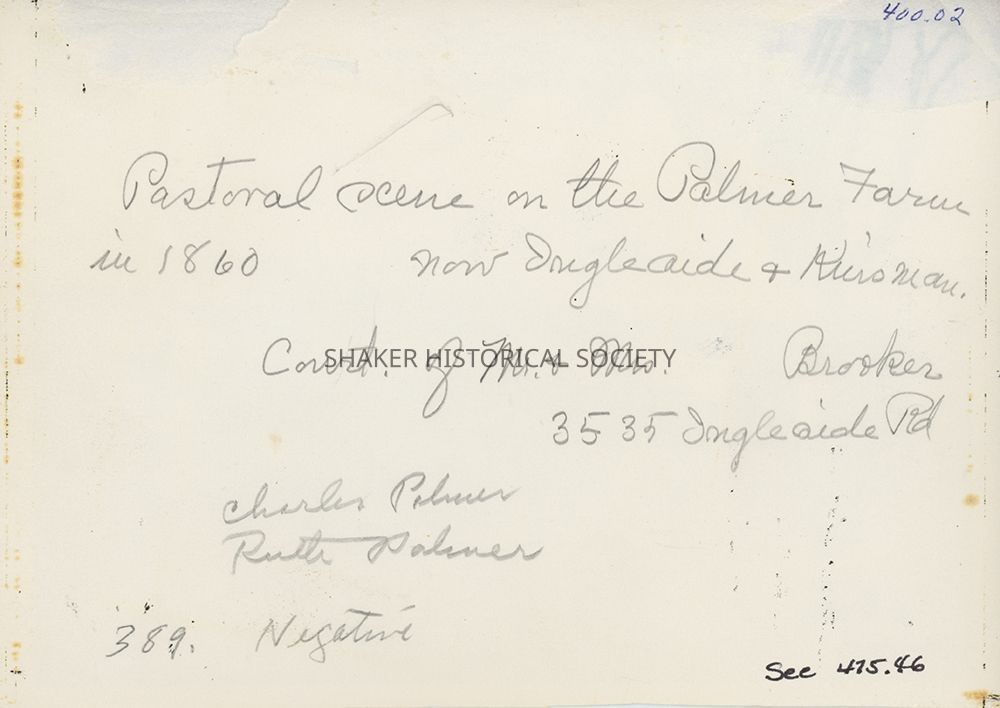 400.02
Pastoral scene on the Palmer Farm
in 1860 now Ingleside & Kinsman.
Court. of Mr. & Mrs. Brooker
SHAKER HISTORICAL SOCIETY
3535 Ingleside Rd
Charles Palmer
Ruth Palmer
389. Negative
See 475.46